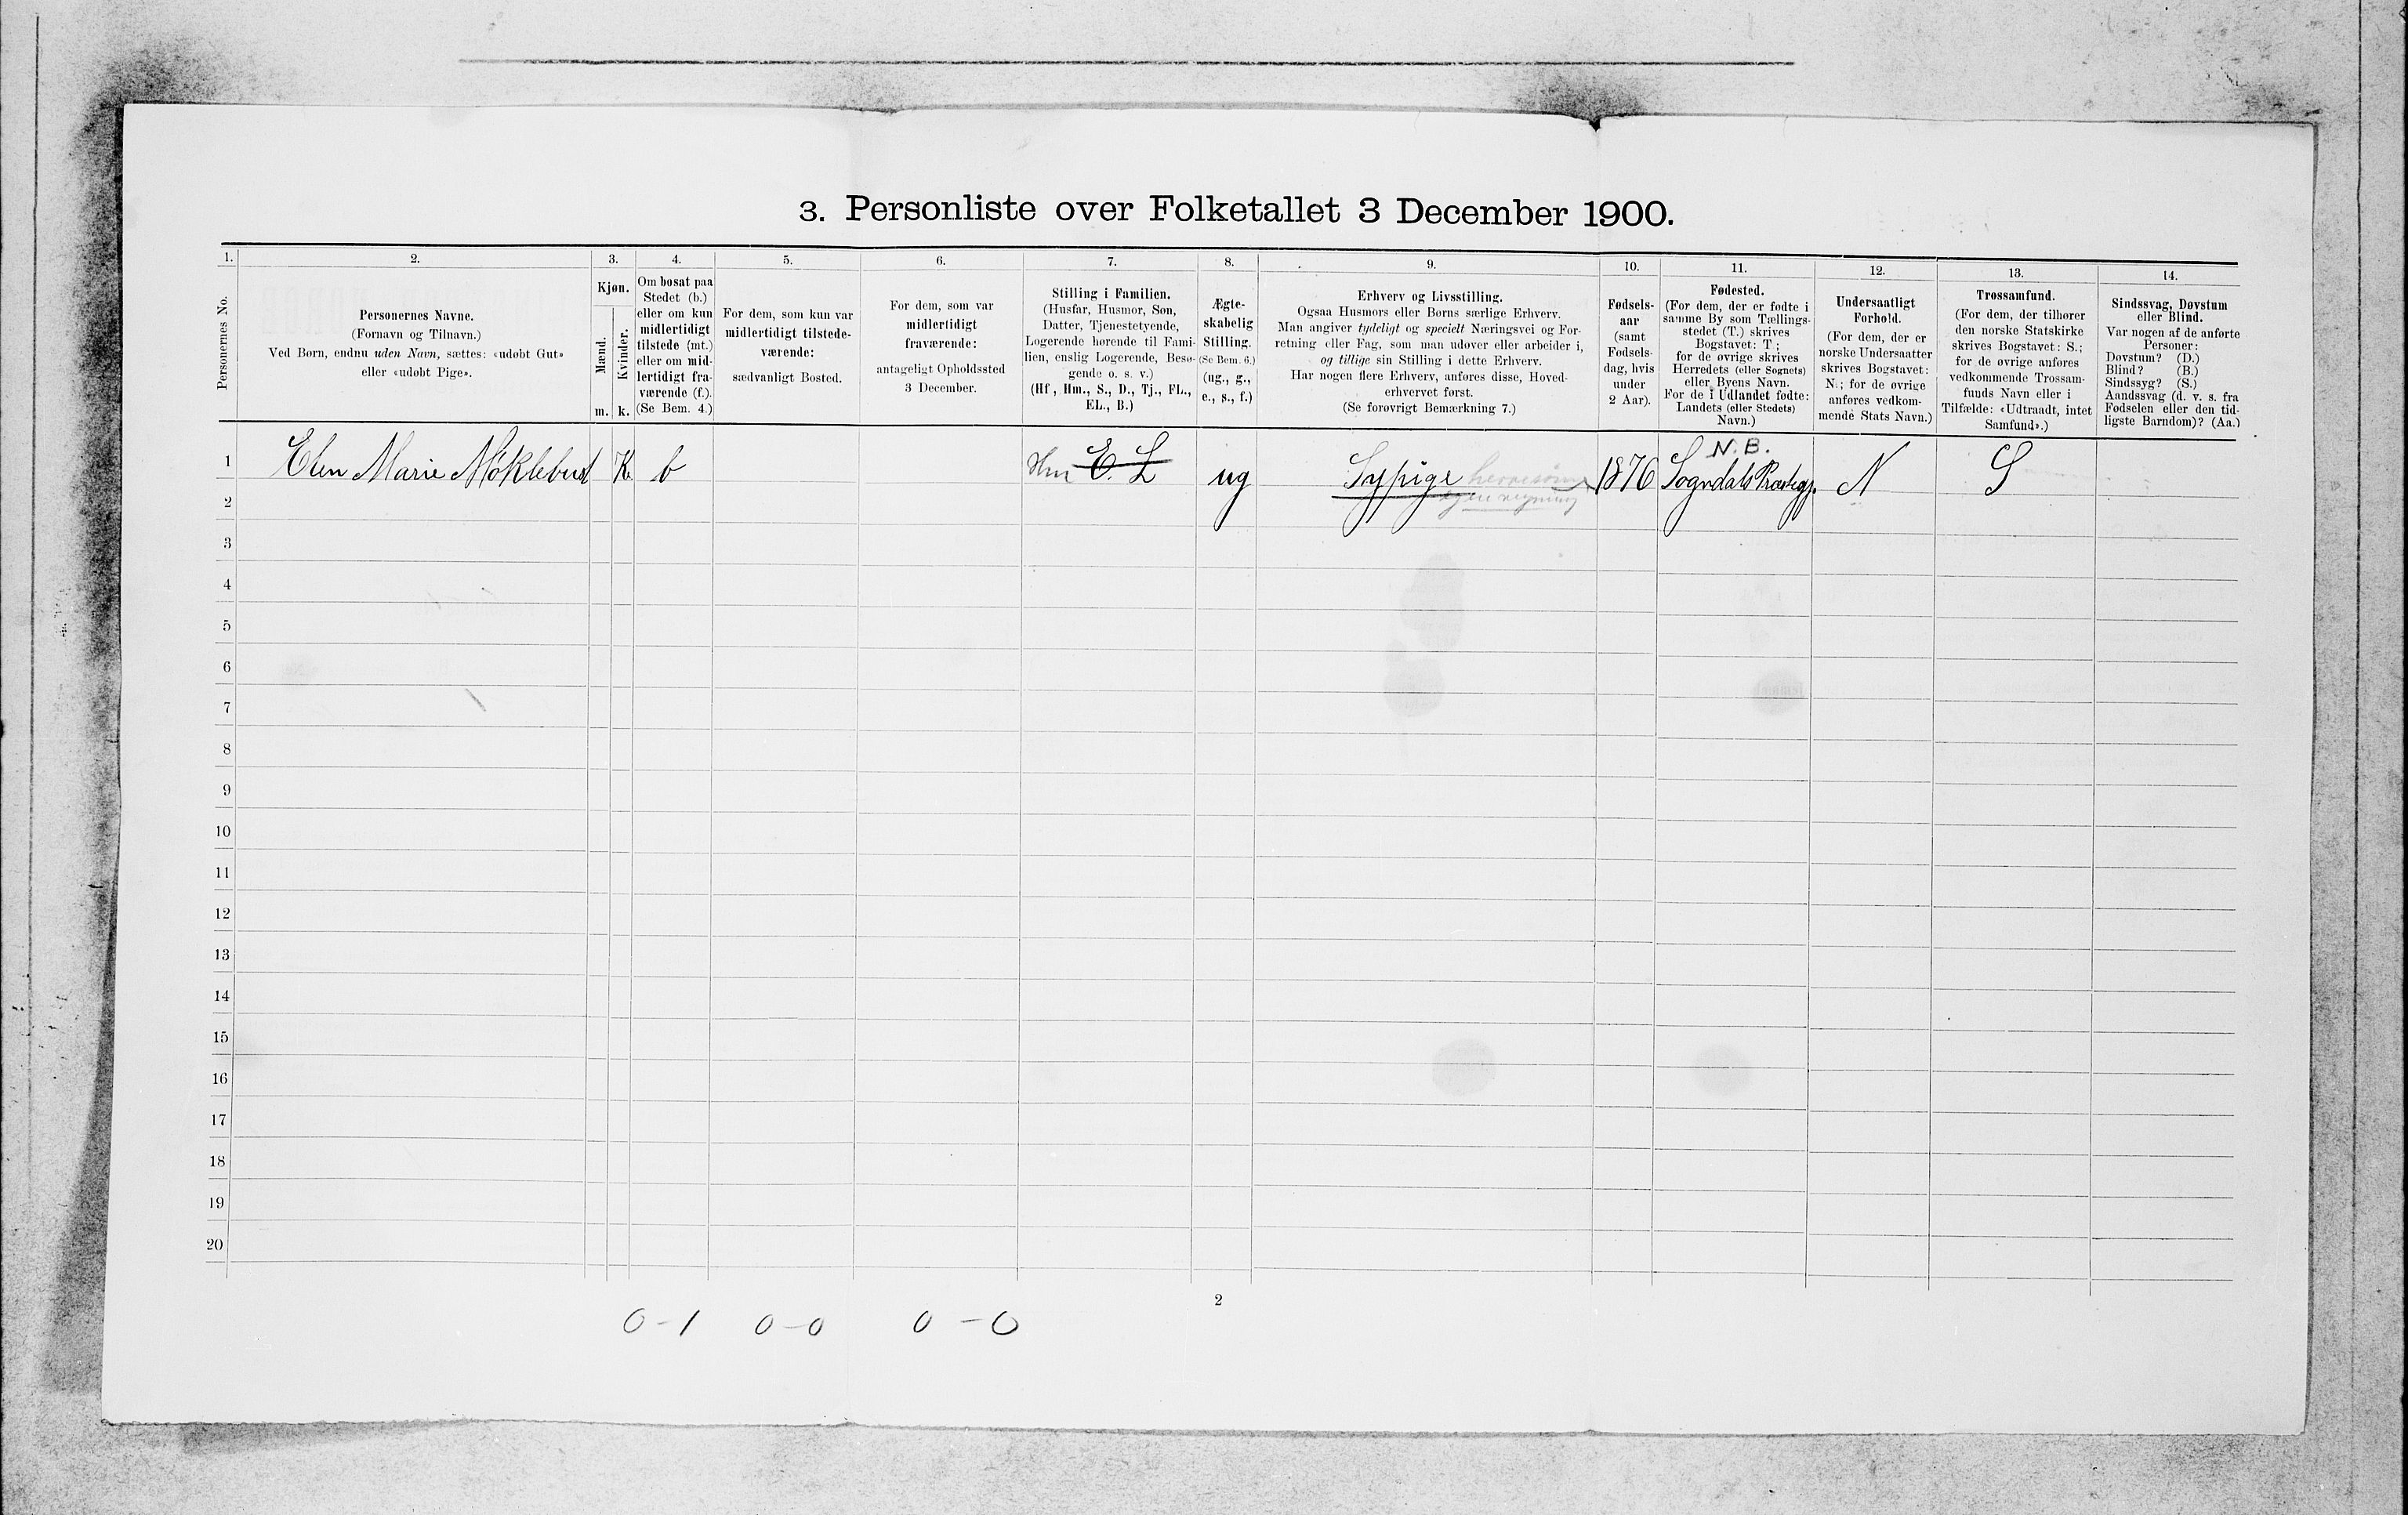 3. Personliste over Folketallet 3 December 1900.
1. 2. 3. 4. 5. 6. 7. 8. 9. 10. 11. 12. 13. 14.
Personernes No.
Personernes Navne.
(Fornavn og Tilnavn.)
Ved Børn, endnu uden Navn, sættes: «udøbt Gut»
eller «udøbt Pige».
Kjøn.
Mænd.
Kvinder.
m. k.
Om bosat paa
Stedet (b.)
eller om kun
midlertidigt
tilstede (mt.)
eller om mid-
lertidigt fra-
værende (f.).
(Se Bem. 4.)
For dem, som kun var
midlertidigt tilstede-
værende:
sædvanligt Bosted.
For dem, som var
midlertidigt
fraværende:
antageligt Opholdssted
3 December.
Stilling i Familien.
(Husfar, Husmor, Søn,
Datter, Tjenestetyende,
Logerende hørende til Fami-
lien, enslig Logerende, Besø-
gende o. s. v.)
(Hf, Hm., S., D., Tj., FL.,
EL., B.)
Ægte-
skabelig
Stilling.
(Se Bem. 6.)
(ug., g.,
e., s., f.)
Erhverv og Livsstilling.
Ogsaa Husmors eller Børns særlige Erhverv.
Man angiver tydeligt og specielt Næringsvei og For-
retning eller Fag, som man udøver eller arbeider i,
og tillige sin Stilling i dette Erhverv.
Har nogen flere Erhverv, anføres disse, Hoved-
erhvervet først.
(Se forøvrigt Bemærkning 7.)
Fødsels-
aar
(samt
Fødsels-
dag, hvis
under
2 Aar).
Fødested.
(For dem, der er fødte i
samme By som Tællings-
stedet (T.) skrives
Bogstavet: T;
for de øvrige skrives
Herredets (eller Sognets)
eller Byens Navn.
For de i Udlandet fødte:
Landets (eller Stedets)
Navn.)
Undersaatligt
Forhold.
(For dem, der er
norske Undersaatter
skrives Bogstavet:
N.; for de øvrige
anføres vedkom-
mende Stats Navn.)
Trossamfund.
(For dem, der tilhører
den norske Statskirke
skrives Bogstavet: S.;
for de øvrige anføres
vedkommende Trossam-
funds Navn eller i
Tilfælde: «Udtraadt, intet
Samfund».)
Sindssvag, Døvstum
eller Blind.
Var nogen af de anførte
Personer:
Døvstum? (D.)
Blind? (B.)
Sindssyg? (S.)
Aandssvag (d. v. s. fra
Fødselen eller den tid-
ligste Barndom)? (Aa.)
N. B.
1 Elen Marie Møklebust K b Hm E. L ug Sypige 1876 Sogndals Præstegj. N S
egen regning
2
3
4
5
6
7
8
9
10
11
12
13
14
15
16
17
18
19
20
2
0-1 0-0 0-0